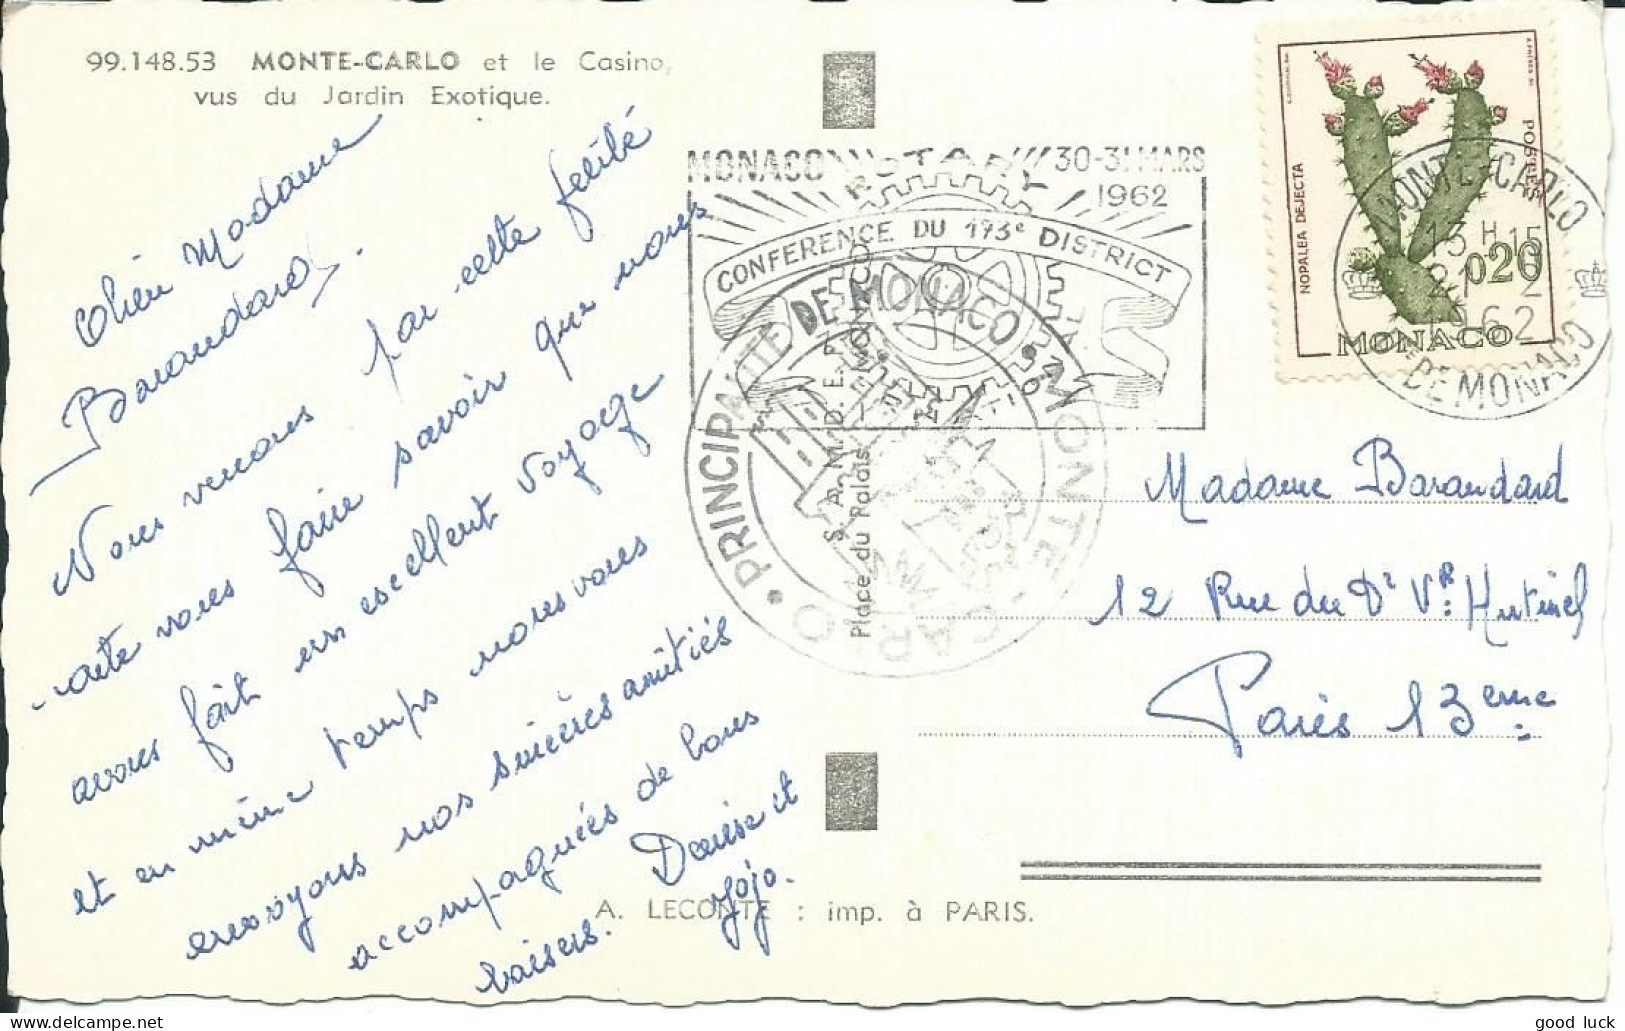 99.148.53 MONTE-CARLO et le Casino,
vus du Jardin Exotique.
Chère Madame
Barandard,
Nous venons par cette petite
carte vous faire savoir que nous
avons fait un excellent voyage
et en même temps nous vous
envoyons nos sincères amitiés
accompagnées de bons
baisers. Denise et
Jojo.
A. LECONTE : imp. à PARIS.
MONACO ROTARY 30-31 MARS
1962
CONFERENCE DU 173e DISTRICT
PRINCIPAUTÉ DE MONACO • MONTE-CARLO •
S. A. M. D. E. P. A. MONACO
Place du Palais
NOPALEA DEJECTA
POSTES
0,20
MONACO
MONTE-CARLO
15 H 15
1962
DE MONACO
Madame Barandard
12 Rue du Dr Vr: Hutinel
Paris 13eme
good luck